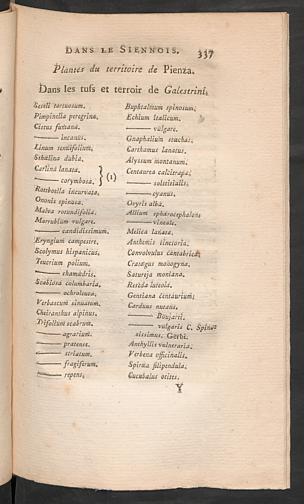 DANS LE SIENNOIS. 337
Plantes du territoire de Pienza.
Dans les tufs et terroir de Galestrini,
Seseli tortuosum.
Pimpinella peregrina.
Cistus fumana.
—— incanus.
Linum tenuifolium.
Stæhlina dubia.
Carlina lanata.
—— corymbosa. } (1)
Rottboella incurvata.
Ononis spinosa.
Malva rotundifolia.
Marrubium vulgare.
—— candidissimum.
Eryngium campestre.
Scolymus hispanicus.
Teucrium polium.
—— chamædris.
Scabiosa columbaria.
—— ochroleuca.
Verbascum sinuatum.
Cheiranthus alpinus.
Trifolium scabrum.
—— agrarium.
—— pratense.
—— striatum.
—— fragiferum.
—— repens.
Buphtalmum spinosum.
Echium italicum.
—— vulgare.
Gnaphalium stœchas.
Carthamus lanatus.
Alyssum montanum.
Centaurea calcitrapa.
—— solstitialis.
—— cyanus.
Osyris alba.
Allium sphærocephalon
—— vineale.
Melica lanata.
Anthemis tinctoria.
Convolvulus cantabrica.
Cratægus monogyna.
Satureja montana.
Reseda luteola.
Gentiana centaurium.
Carduus nutans.
—— Boujarti.
—— vulgaris C. Spino-
sissimus. Gerbi.
Anthyllis vulneraria.
Verbena officinalis.
Spiræa filipendula.
Cucubalus otites.
Y